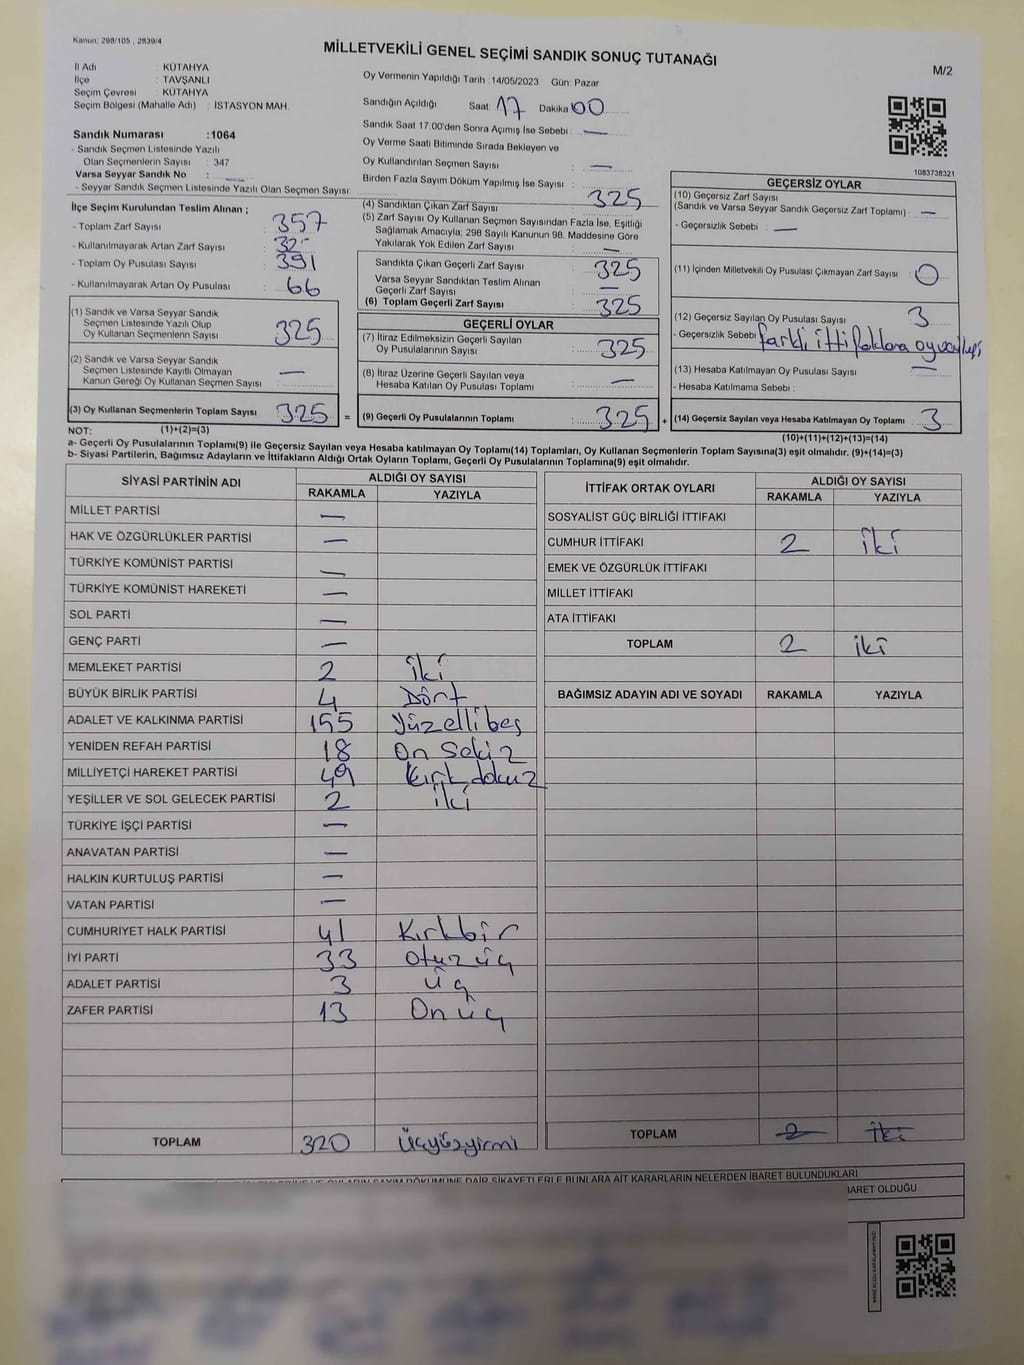 Kanun; 298/105 , 2839/4
MİLLETVEKİLİ GENEL SEÇİMİ SANDIK SONUÇ TUTANAĞI
M/2
İl Adı : KÜTAHYA
İlçe : TAVŞANLI
Seçim Çevresi : KÜTAHYA
Seçim Bölgesi (Mahalle Adı) : İSTASYON MAH.
Sandık Numarası :1064
- Sandık Seçmen Listesinde Yazılı
Olan Seçmenlerin Sayısı : 347
Varsa Seyyar Sandık No :
- Seyyar Sandık Seçmen Listesinde Yazılı Olan Seçmen Sayısı:
Oy Vermenin Yapıldığı Tarih :14/05/2023 Gün: Pazar
Sandığın Açıldığı Saat: 17 Dakika 00
Sandık Saat 17:00'den Sonra Açımış İse Sebebi : —
Oy Verme Saati Bitiminde Sırada Bekleyen ve
Oy Kullandırılan Seçmen Sayısı : —
Birden Fazla Sayım Döküm Yapılmış İse Sayısı :
1083738321
İlçe Seçim Kurulundan Teslim Alınan ;
- Toplam Zarf Sayısı : 357
- Kullanılmayarak Artan Zarf Sayısı : 32
- Toplam Oy Pusulası Sayısı : 391
- Kullanılmayarak Artan Oy Pusulası : 66
(1) Sandık ve Varsa Seyyar Sandık
Seçmen Listesinde Yazılı Olup
Oy Kullanan Seçmenlerin Sayısı : 325
(2) Sandık ve Varsa Seyyar Sandık
Seçmen Listesinde Kayıtlı Olmayan
Kanun Gereği Oy Kullanan Seçmen Sayısı : —
(3) Oy Kullanan Seçmenlerin Toplam Sayısı : 325 =
(4) Sandıktan Çıkan Zarf Sayısı : 325
(5) Zarf Sayısı Oy Kullanan Seçmen Sayısından Fazla İse, Eşitliği
Sağlamak Amacıyla, 298 Sayılı Kanunun 98. Maddesine Göre
Yakılarak Yok Edilen Zarf Sayısı : —
Sandıkta Çıkan Geçerli Zarf Sayısı : 325
Varsa Seyyar Sandıktan Teslim Alınan
Geçerli Zarf Sayısı : —
(6) Toplam Geçerli Zarf Sayısı : 325
GEÇERLİ OYLAR
(7) İtiraz Edilmeksizin Geçerli Sayılan
Oy Pusulalarının Sayısı : 325
(8) İtiraz Üzerine Geçerli Sayılan veya
Hesaba Katılan Oy Pusulası Toplamı : —
(9) Geçerli Oy Pusulalarının Toplamı : 325 +
GEÇERSİZ OYLAR
(10) Geçersiz Zarf Sayısı
(Sandık ve Varsa Seyyar Sandık Geçersiz Zarf Toplamı) : —
- Geçersizlik Sebebi : —
(11) İçinden Milletvekili Oy Pusulası Çıkmayan Zarf Sayısı : 0
(12) Geçersiz Sayılan Oy Pusulası Sayısı : 3
- Geçersizlik Sebebi : farklı ittifaklara oy
(13) Hesaba Katılmayan Oy Pusulası Sayısı : —
- Hesaba Katılmama Sebebi :
(14) Geçersiz Sayılan veya Hesaba Katılmayan Oy Toplamı : 3
NOT: (1)+(2)=(3)
(10)+(11)+(12)+(13)=(14)
a- Geçerli Oy Pusulalarının Toplamı(9) ile Geçersiz Sayılan veya Hesaba katılmayan Oy Toplamı(14) Toplamları, Oy Kullanan Seçmenlerin Toplam Sayısına(3) eşit olmalıdır. (9)+(14)=(3)
b- Siyasi Partilerin, Bağımsız Adayların ve İttifakların Aldığı Ortak Oyların Toplamı, Geçerli Oy Pusulalarının Toplamına(9) eşit olmalıdır.
SİYASİ PARTİNİN ADI ALDIĞI OY SAYISI
RAKAMLA YAZIYLA
MİLLET PARTİSİ —
HAK VE ÖZGÜRLÜKLER PARTİSİ —
TÜRKİYE KOMÜNİST PARTİSİ —
TÜRKİYE KOMÜNİST HAREKETİ —
SOL PARTİ —
GENÇ PARTİ —
MEMLEKET PARTİSİ 2 iki
BÜYÜK BİRLİK PARTİSİ 4 Dört
ADALET VE KALKINMA PARTİSİ 155 Yüzellibeş
YENİDEN REFAH PARTİSİ 18 On Sekiz
MİLLİYETÇİ HAREKET PARTİSİ 49 Kırkdokuz
YEŞİLLER VE SOL GELECEK PARTİSİ 2 iki
TÜRKİYE İŞÇİ PARTİSİ —
ANAVATAN PARTİSİ —
HALKIN KURTULUŞ PARTİSİ —
VATAN PARTİSİ —
CUMHURİYET HALK PARTİSİ 41 Kırkbir
İYİ PARTİ 33 Otuz üç
ADALET PARTİSİ 3 üç
ZAFER PARTİSİ 13 On üç
TOPLAM 320 Üçyüzyirmi
İTTİFAK ORTAK OYLARI ALDIĞI OY SAYISI
RAKAMLA YAZIYLA
SOSYALİST GÜÇ BİRLİĞİ İTTİFAKI
CUMHUR İTTİFAKI 2 iki
EMEK VE ÖZGÜRLÜK İTTİFAKI
MİLLET İTTİFAKI
ATA İTTİFAKI
TOPLAM 2 iki
BAĞIMSIZ ADAYIN ADI VE SOYADI RAKAMLA YAZIYLA
TOPLAM 2 iki
SAYIM DÖKÜMÜNE DAİR ŞİKAYETLERLE BUNLARA AİT KARARLARIN NELERDEN İBARET BULUNDUKLARI
İBARET OLDUĞU